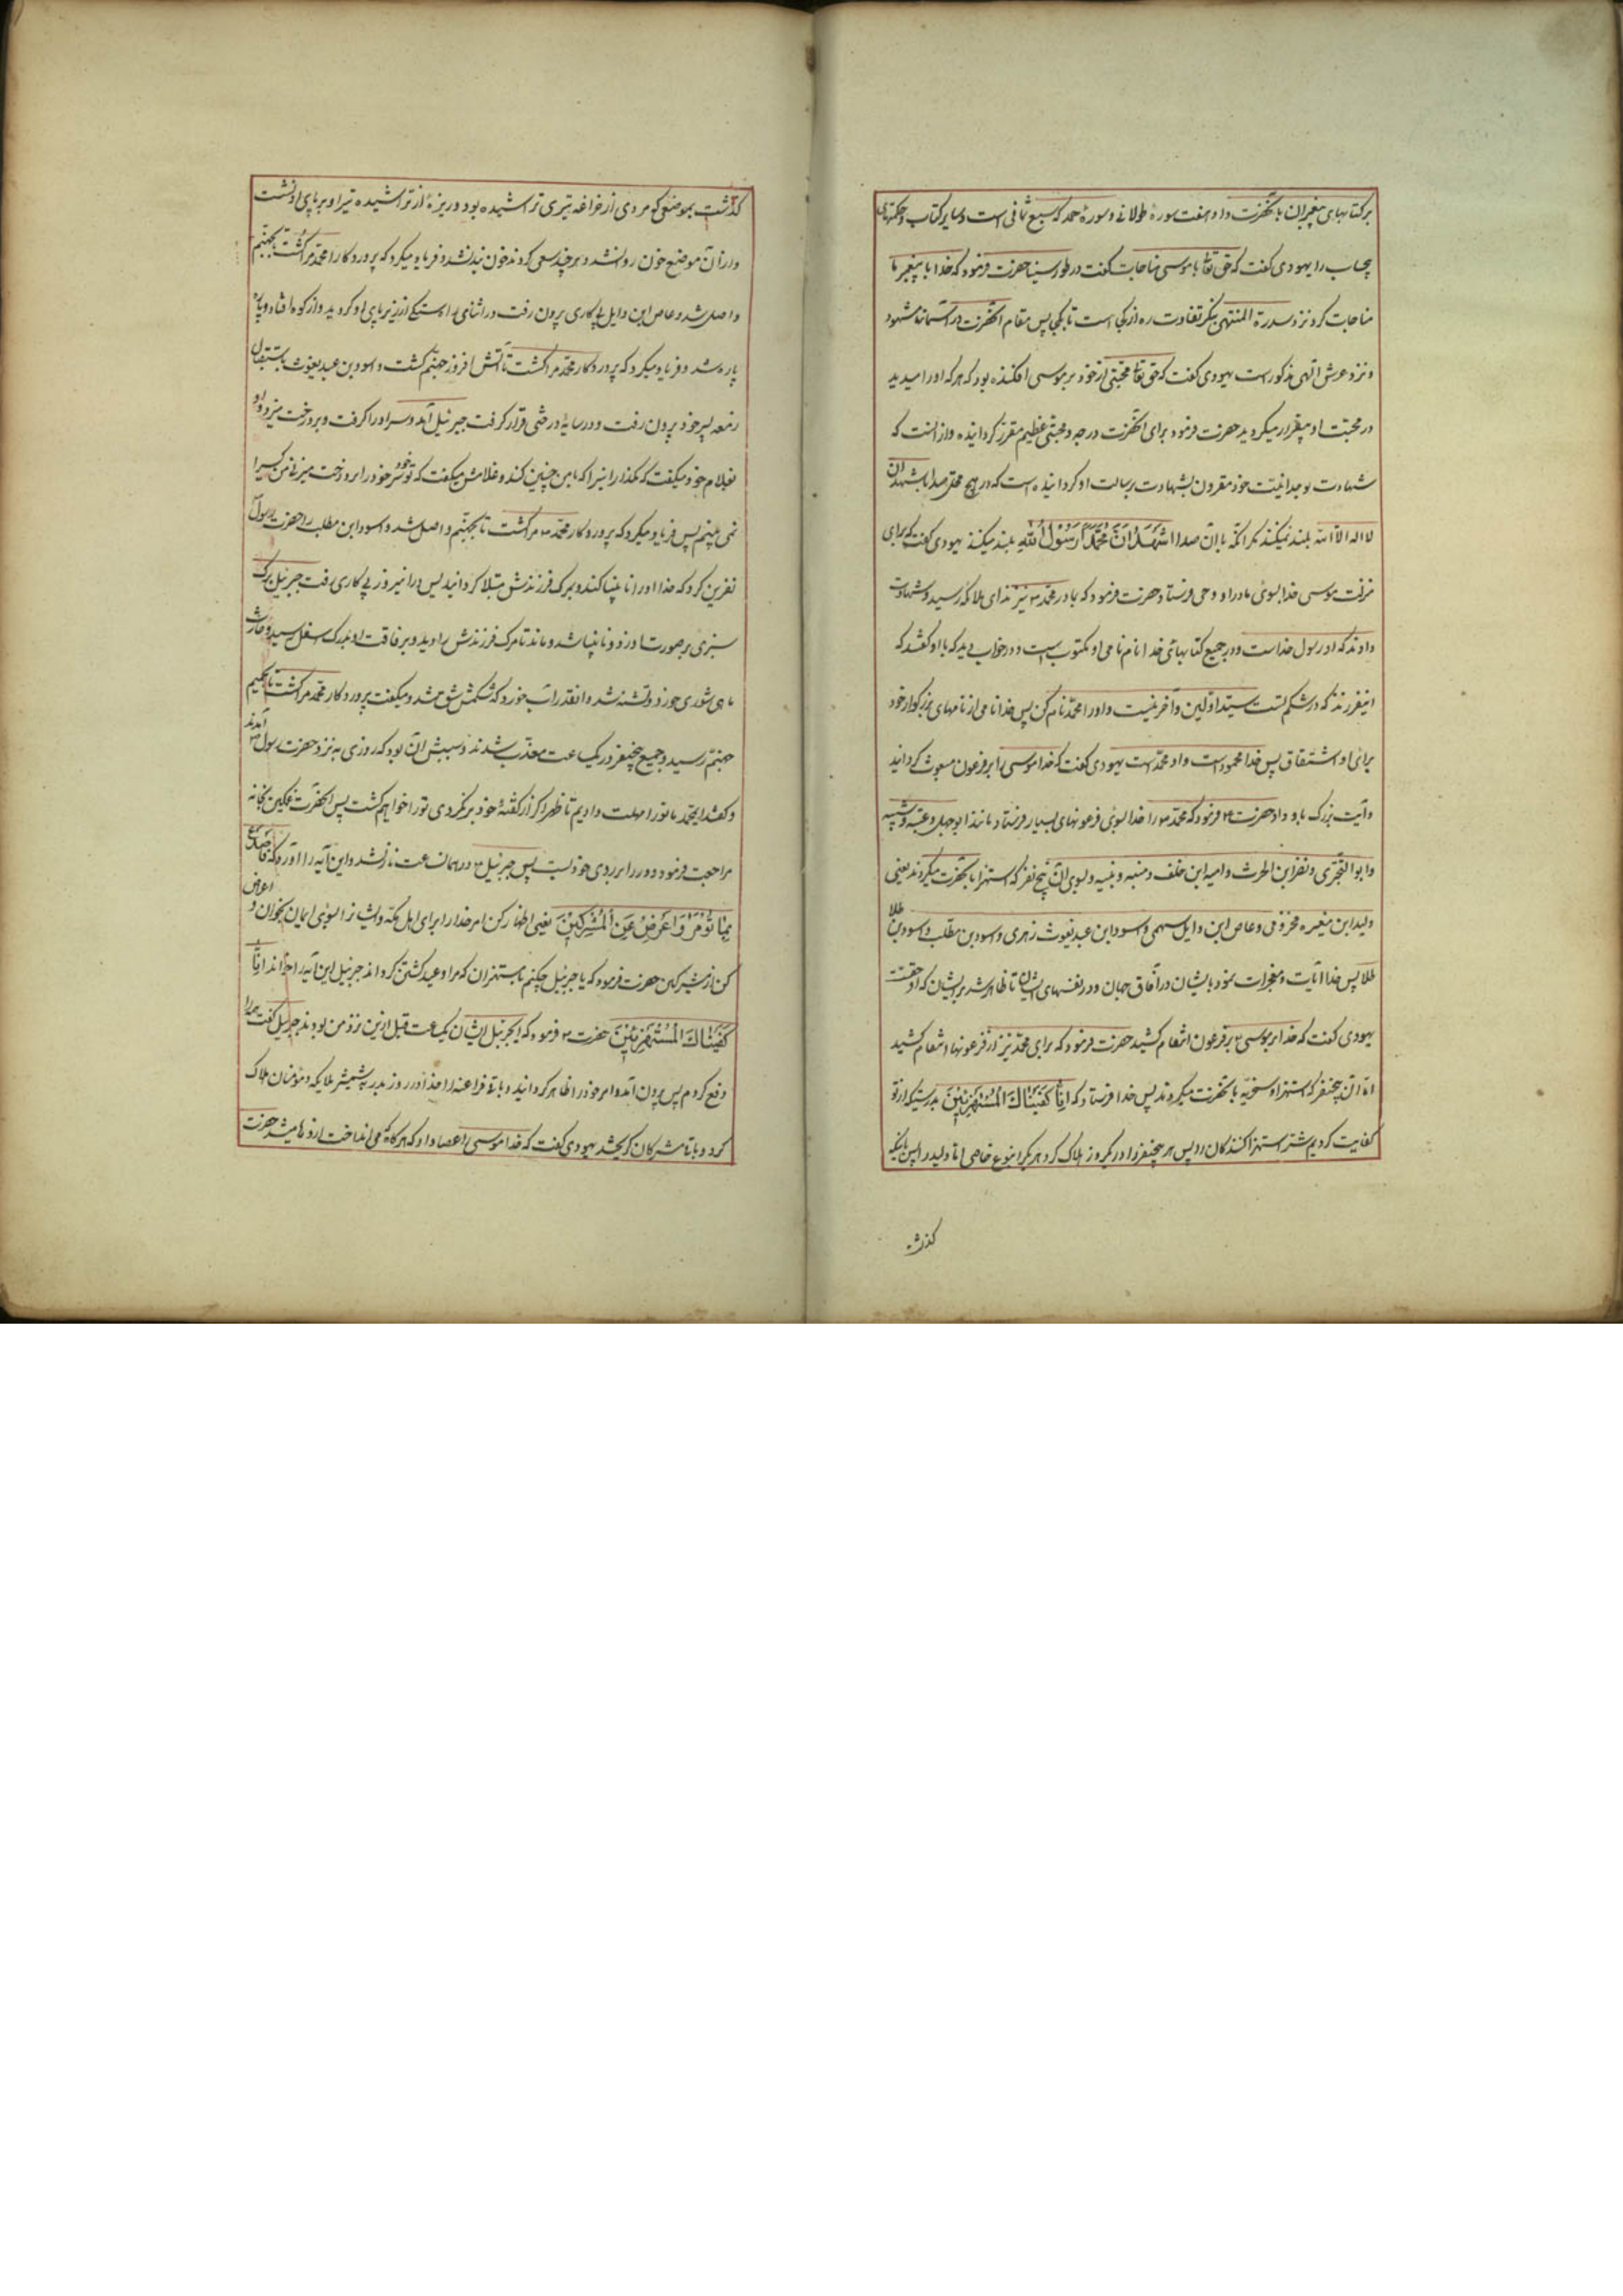 بر کتابهای پیغمبران بآنحضرت داد و هفت سورهٔ طولانی و سورهٔ حمد که سبع مثانی است و سایر کتاب و حکمتهای
بیحساب را یهودی گفت که حق تعالی با موسی مناجات گفت در طور سینا حضرت فرمود که خدا با پیغمبر ما
مناجات کرد نزد سدرة المنتهی بنگر تفاوت ره از کجا است تا بکجا پس مقام آنحضرت در آسمانها مشهود
و نزد عرش الهی مذکور است یهودی گفت که حق تعالی محبتی از خود بر موسی افکنده بود که هر که اورا میدید
در محبت او بیقرار میگردید حضرت فرمود برای آنحضرت درجه و محبتی عظیم مقرر گردانیده و از آنست که
شهادت بوحدانیت خود مقرون بشهادت رسالت او گردانیده است که در هیچ محلی صدا باشهد ان
لا اله الا الله بلند نمیکنند مگر آنکه با آن صدا اشهد ان محمدا رسول الله بلند میکنند یهودی گفت که برای
منزلت موسی خدا بسوی مادر او وحی فرستاد حضرت فرمود که بمادر محمد ص نیز ندای ملائکه رسید و شهادت
دادند که او رسول خداست و در جمیع کتابهای خدا نام نامی او مکتوب است و در خواب دید که با او گفتند که
اینفرزند که در شکم تست سید اولین و آخرینست و اورا محمد نام کن پس خدا نامی از نامهای بزرگوار خود
برای او اشتقاق پس خدا محمود است و او محمد است یهودی گفت که خدا موسی را بر فرعون مبعوث گردانید
و آیت بزرگ باو داد حضرت ع فرمود که محمد ص را خدا بسوی فرعونهای بسیار فرستاد مانند ابوجهل و عتبه و شیبه
و ابو البختری و نضر ابن الحرث و امیه ابن خلف و منبه و نبیه و بسوی آن پنج نفر که استهزا بآنحضرت میکردند یعنی
ولید ابن مغیره مخزومی و عاص ابن وایل سهمی و اسود ابن عبد یغوث زهری و اسود بن مطلب و اسود بن طلا
طلا پس خدا آیات و معجزات نمود بایشان در آفاق جهان و در نفسهای ایشان تا ظاهر شد بر ایشان که او حقست
یهودی گفت که خدا بر موسی ع بر فرعون انتقام کشید حضرت فرمود که برای محمد نیز از فرعونها انتقام کشید
اما آن پنجنفر که استهزا و سخریه بآنحضرت میکردند پس خدا فرستاد که انا کفیناک المستهزئین بدرستیکه از تو
کفایت کردیم شر استهزا کنندگان را پس هر پنجنفر را در یکروز هلاک کرد هر یکرا بنوع خاصی اما ولید پس
گذشت بموضعی که مردی از خزاعه تیری تراشیده بود و ریزهٔ از تراشیده تیر او بر پای او نشست
و از آن موضع خون روانشد و هر چند سعی کردند خون بند نشد و فریاد میکرد که پروردگار محمد مرا کشت تا بجهنم
واصل شد و عاص ابن وایل پی کاری بیرون رفت در اثنای راه سنگی از زیر پای او گردید و از کوه افتاد و پاره
پاره شد و فریاد میکرد که پروردگار محمد مرا کشت تا آتش افروز جهنم گشت و اسود بن عبد یغوث باستقبال
زمعه پسر خود بیرون رفت و در سایهٔ درختی قرار گرفت جبرئیل آمد و سر اورا گرفت و بر درخت میزد و او
بغلام خود میگفت که مگذار اینرا که با من چنین کند و غلامش میگفت که تو خود سر خود را بر درخت میزنی من کسیرا
نمی بینم پس فریاد میکرد که پروردگار محمد ص مرا کشت تا بجهنم واصل شد و اسود ابن مطلب را حضرت رسول
نفرین کرد که خدا اورا نابینا کند و بمرگ فرزندش مبتلا گرداند پس در آنروز پی کاری رفت جبرئیل برگ
سبزی بر صورت او زد و نابینا شد و ماند تا مرگ فرزندش را دید و برفاقت او بدرک اسفل رسید و حارث
ماهی شوری خورد و تشنه شد و انقدر آب خورد که شکمش شق شد و میگفت پروردگار محمد مرا کشت تا بجحیم
جهنم رسید و جمیع پنجنفر در یکساعت معذب شدند و سببش آن بود که روزی به نزد حضرت رسول ص آمدند
و گفتند ایمحمد ما تورا مهلت دادیم تا ظهر اگر از گفتهٔ خود بر نگردی تورا خواهیم کشت پس آنحضرت غمگین بخانه
مراجعت فرمود و در را بر روی خود بست پس جبرئیل ع در همان ساعت نازلشد و این آیه را آورد که فاصدع
بما تؤمر و اعرض عن المشرکین یعنی اظهار کن امر خدا را برای اهل مکه و ایشانرا بسوی ایمان بخوان و اعراض
کن از مشرکین حضرت فرمود که یا جبرئیل چکنم با مستهزان که مرا وعید کشتن کرده اند جبرئیل این آیه را خواند انا
کفیناک المستهزئین حضرت ص فرمود که ایجبرئیل ایشان یکساعت قبل ازین نزد من بودند جبرئیل گفت همه را
دفع کردم پس بیرون آمد و امر خود را ظاهر گردانید و باقی فراعنه را خدا در روز بدر بشمشیر ملایکه و مؤمنان هلاک
کرد و باقی مشرکان گریختند یهودی گفت که خدا موسی را عصا داد که هر گاه می انداخت اژدها میشد حضرت